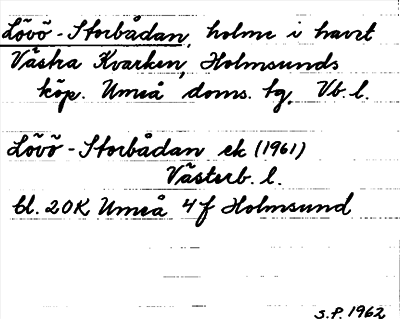 Lövö-Storbådan, holme i havet
Västra Kvarken, Holmsunds
köp. Umeå doms. tg, Vb. l.
Lövö-Storbådan ek (1961)
Västerb. l.
bl. 20K Umeå 4f Holmsund
S.P. 1962